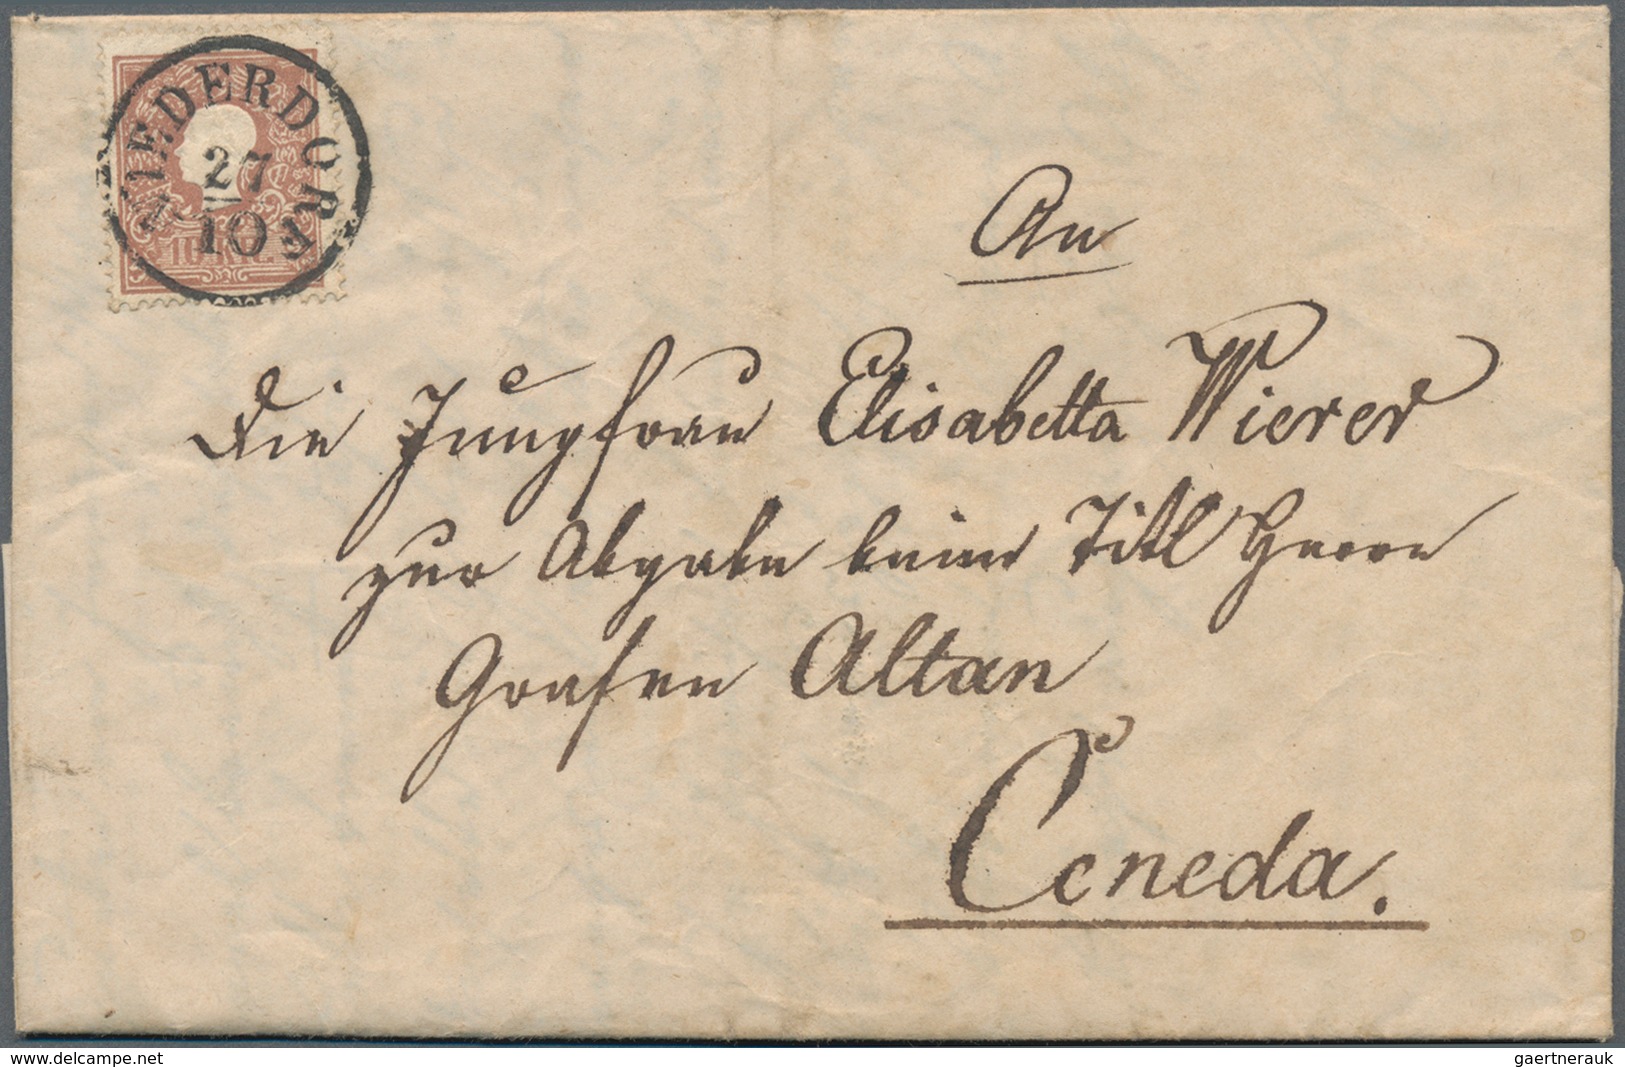 NIEDERDORF
27
10
10 KR.
An
Die Jungfrau Elisabetta Wierer
zur Abgabe beim Titl Herrn
Grafen Altan
Ceneda.
www.delcampe.net
gaertnerauk